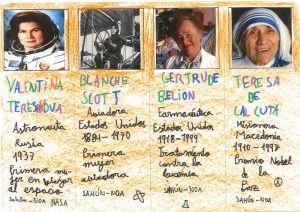 VALENTINA
TERESHKOVA
Astronauta
Rusia
1937
Primera mu-
jer en viajar
al espacio
SAHÚN-NOA NASA
BLANCHE
SCOTT
Aviadora
Estados Unidos
1884-1970
Primera
mujer
aviadora
SAHÚN-NOA
GERTRUDE
BELION
Farmacéutica
Estados Unidos
1918-1999
Tratamiento
contra la
leucemia
SAHÚN-NOA
TERESA
DE
CALCUTA
Misionera
Macedonia
1910-1997
Premio Nobel
de la
Paz
SAHÚN-NOA